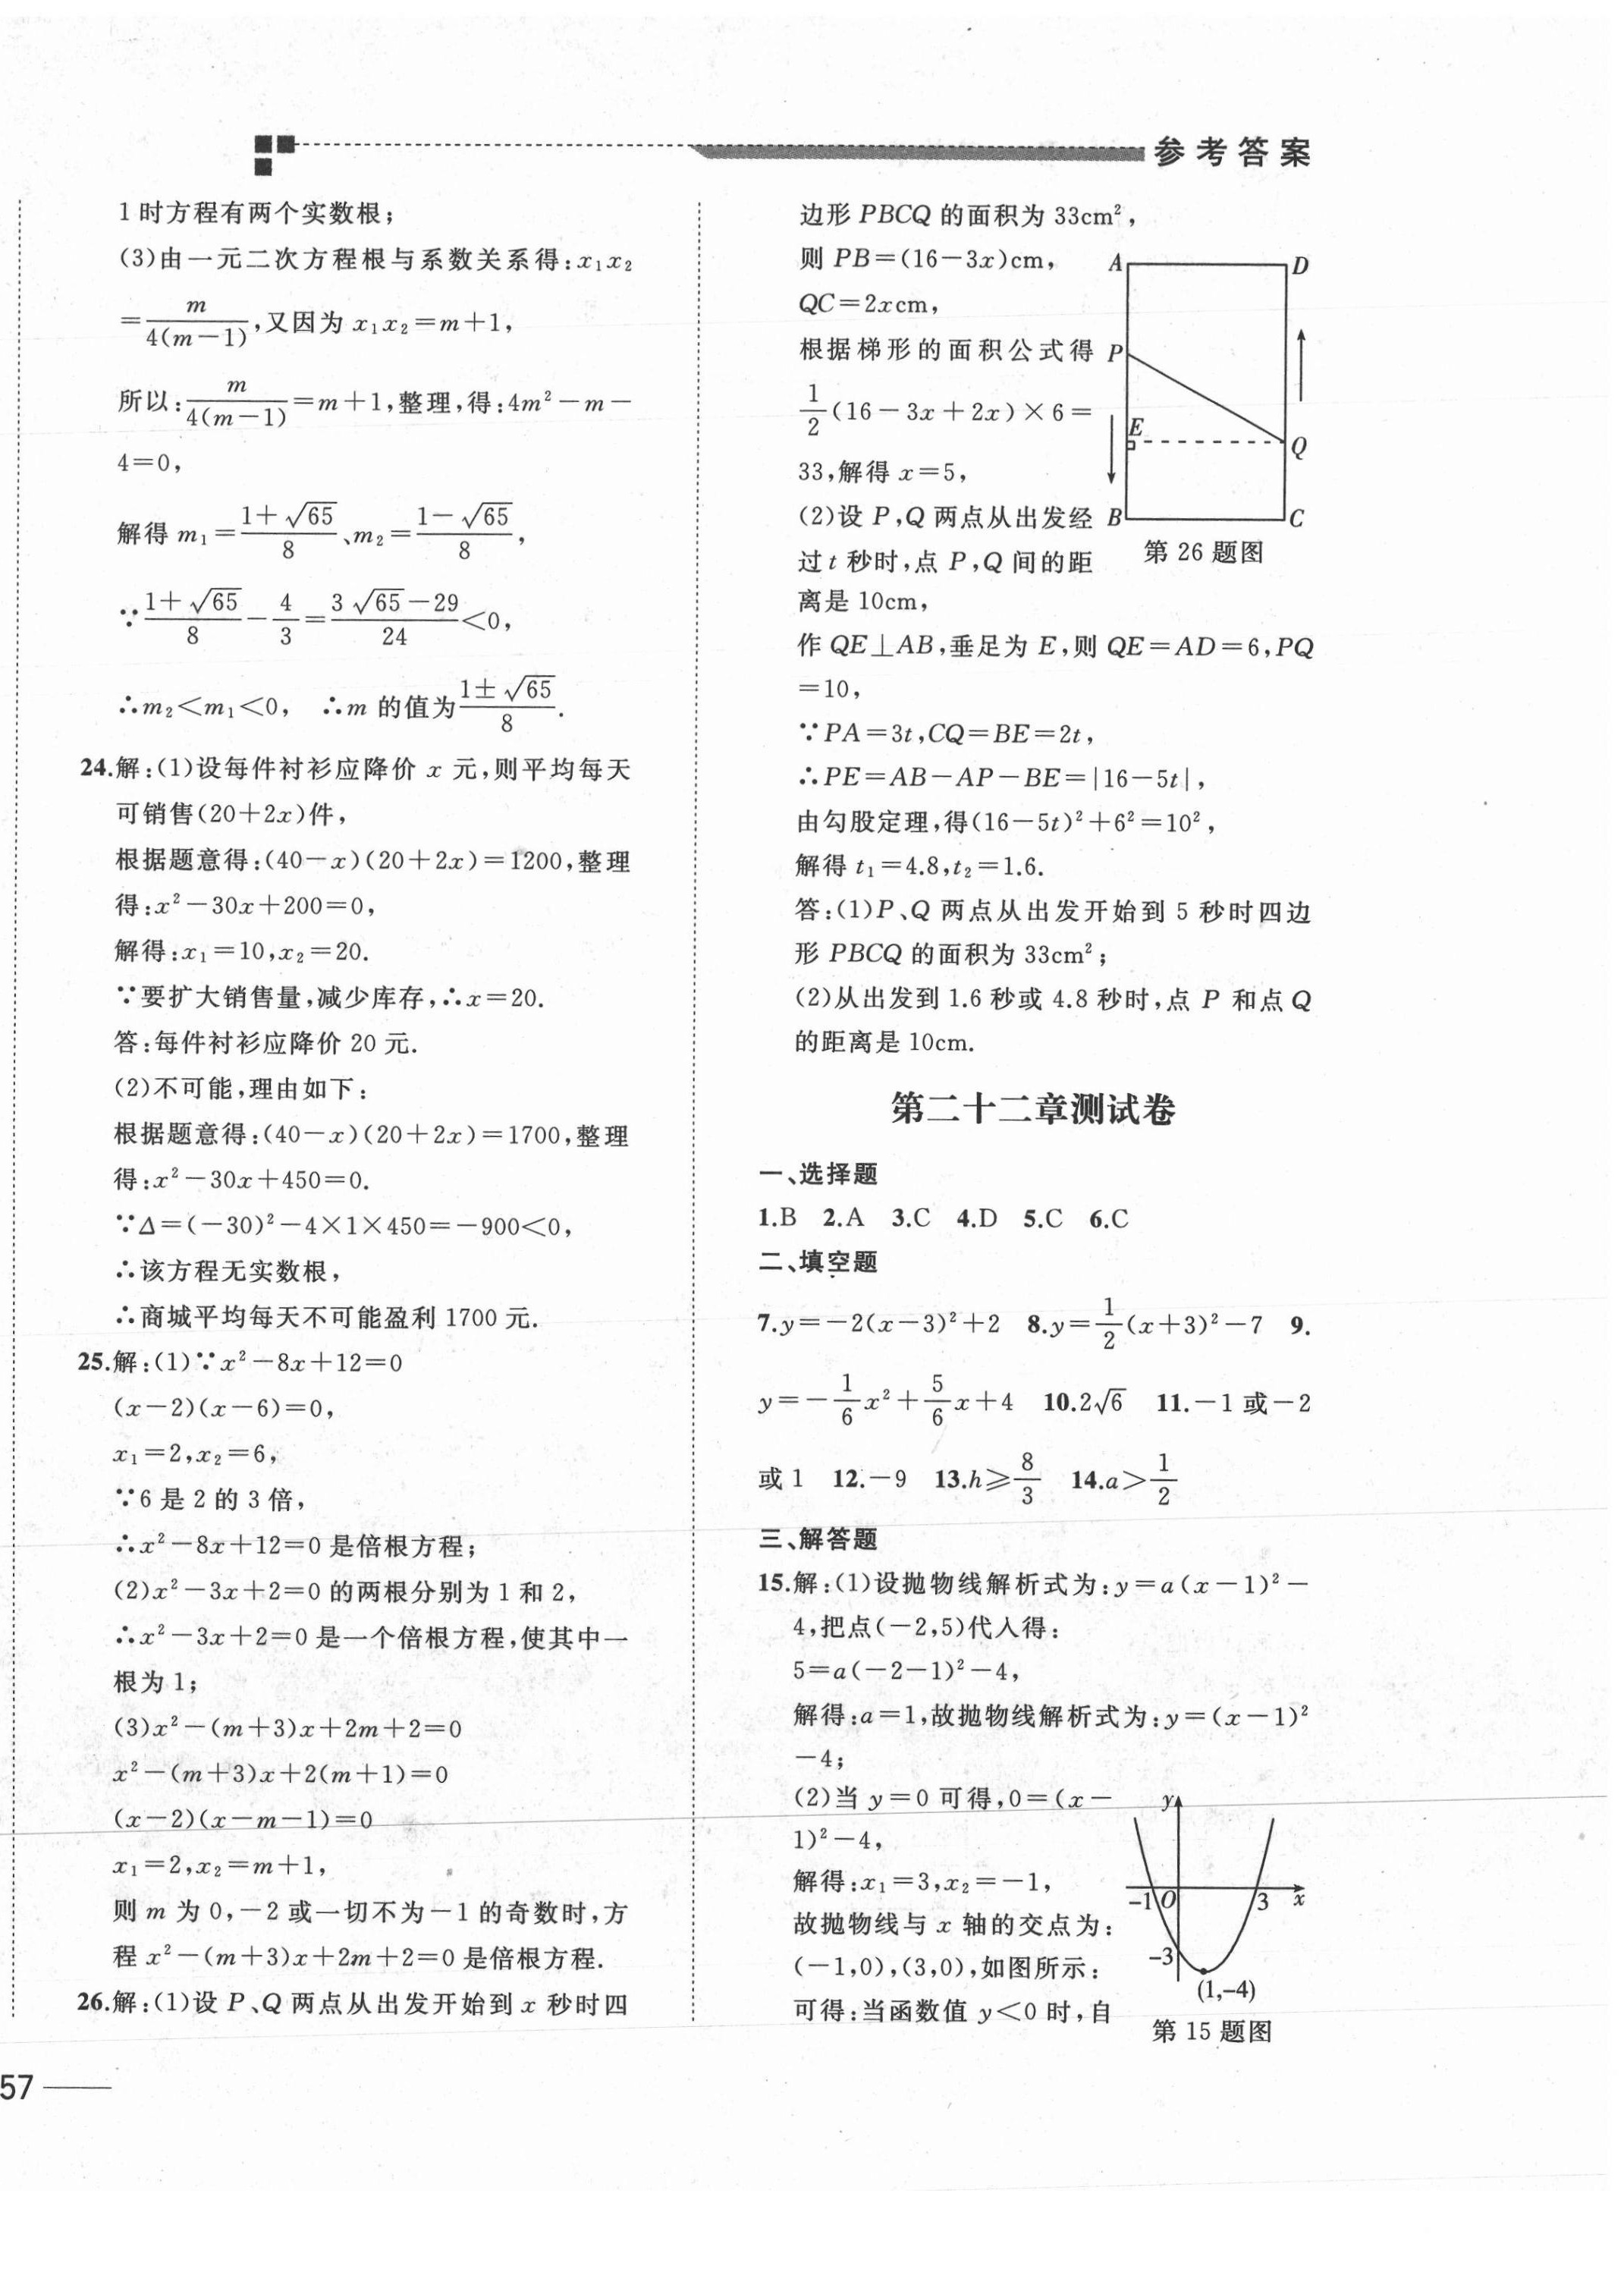 参考答案
1时方程有两个实数根;
(3)由一元二次方程根与系数关系得:x₁x₂
=m/4(m-1),又因为 x₁x₂=m+1,
所以:m/4(m-1)=m+1,整理,得:4m²-m-
4=0,
解得 m₁=(1+√65)/8、m₂=(1-√65)/8,
∵(1+√65)/8-4/3=(3√65-29)/24<0,
∴m₂<m₁<0, ∴m 的值为(1±√65)/8.
24.解:(1)设每件衬衫应降价 x 元,则平均每天
可销售(20+2x)件,
根据题意得:(40-x)(20+2x)=1200,整理
得:x²-30x+200=0,
解得:x₁=10,x₂=20.
∵要扩大销售量,减少库存,∴x=20.
答:每件衬衫应降价 20 元.
(2)不可能,理由如下:
根据题意得:(40-x)(20+2x)=1700,整理
得:x²-30x+450=0.
∵Δ=(-30)²-4×1×450=-900<0,
∴该方程无实数根,
∴商城平均每天不可能盈利 1700 元.
25.解:(1)∵x²-8x+12=0
(x-2)(x-6)=0,
x₁=2,x₂=6,
∵6 是 2 的 3 倍,
∴x²-8x+12=0 是倍根方程;
(2)x²-3x+2=0 的两根分别为 1 和 2,
∴x²-3x+2=0 是一个倍根方程,使其中一
根为 1;
(3)x²-(m+3)x+2m+2=0
x²-(m+3)x+2(m+1)=0
(x-2)(x-m-1)=0
x₁=2,x₂=m+1,
则 m 为 0,-2 或一切不为-1 的奇数时,方
程 x²-(m+3)x+2m+2=0 是倍根方程.
26.解:(1)设 P、Q 两点从出发开始到 x 秒时四
57
边形 PBCQ 的面积为 33cm²,
则 PB=(16-3x)cm,
QC=2xcm,
根据梯形的面积公式得
1/2(16-3x+2x)×6=
33,解得 x=5,
(2)设 P,Q 两点从出发经
过 t 秒时,点 P,Q 间的距
离是 10cm,
A
D
P
E
Q
B
C
第 26 题图
作 QE⊥AB,垂足为 E,则 QE=AD=6,PQ
=10,
∵PA=3t,CQ=BE=2t,
∴PE=AB-AP-BE=|16-5t|,
由勾股定理,得(16-5t)²+6²=10²,
解得 t₁=4.8,t₂=1.6.
答:(1)P、Q 两点从出发开始到 5 秒时四边
形 PBCQ 的面积为 33cm²;
(2)从出发到 1.6 秒或 4.8 秒时,点 P 和点 Q
的距离是 10cm.
第二十二章测试卷
一、选择题
1.B 2.A 3.C 4.D 5.C 6.C
二、填空题
7.y=-2(x-3)²+2 8.y=1/2(x+3)²-7 9.
y=-1/6x²+5/6x+4 10.2√6 11.-1 或-2
或 1 12.-9 13.h≥8/3 14.a>1/2
三、解答题
15.解:(1)设抛物线解析式为:y=a(x-1)²-
4,把点(-2,5)代入得:
5=a(-2-1)²-4,
解得:a=1,故抛物线解析式为:y=(x-1)²
-4;
(2)当 y=0 可得,0=(x-
1)²-4,
解得:x₁=3,x₂=-1,
故抛物线与 x 轴的交点为:
(-1,0),(3,0),如图所示:
可得:当函数值 y<0 时,自
y
-1
O
3
x
-3
(1,-4)
第 15 题图